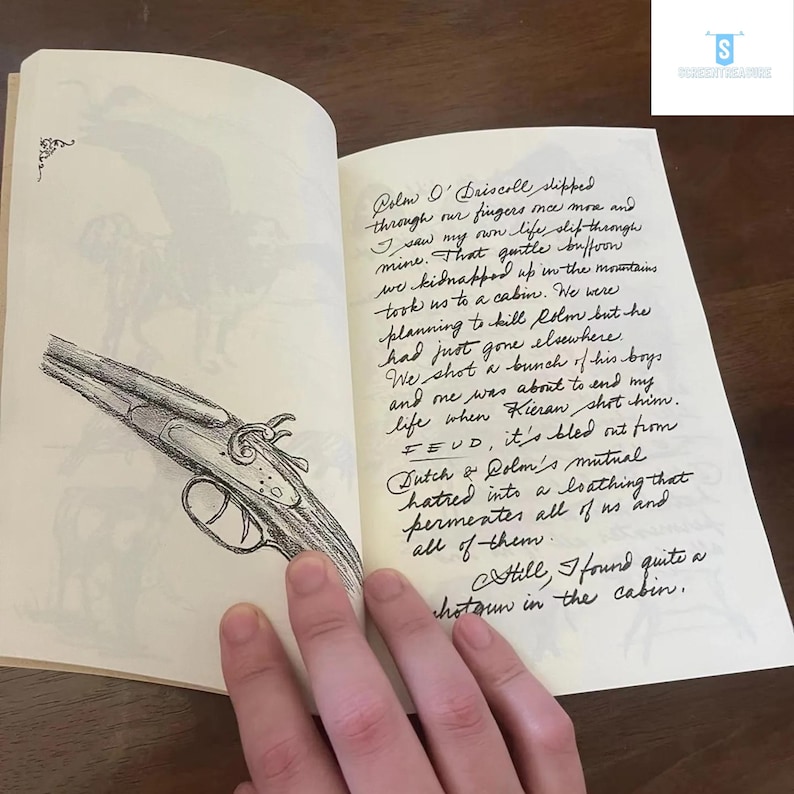 S
SCREENTREASURE
Colm O'Driscoll slipped
through our fingers once more and
I saw my own life slip through
mine. That gentle buffoon
we kidnapped up in the mountains
took us to a cabin. We were
planning to kill Colm but he
had just gone elsewhere.
We shot a bunch of his boys
and one was about to end my
life when Kieran shot him.
FEUD, it's bled out from
Dutch & Colm's mutual
hatred into a loathing that
permeates all of us and
all of them.
Still, I found quite a
shotgun in the cabin.